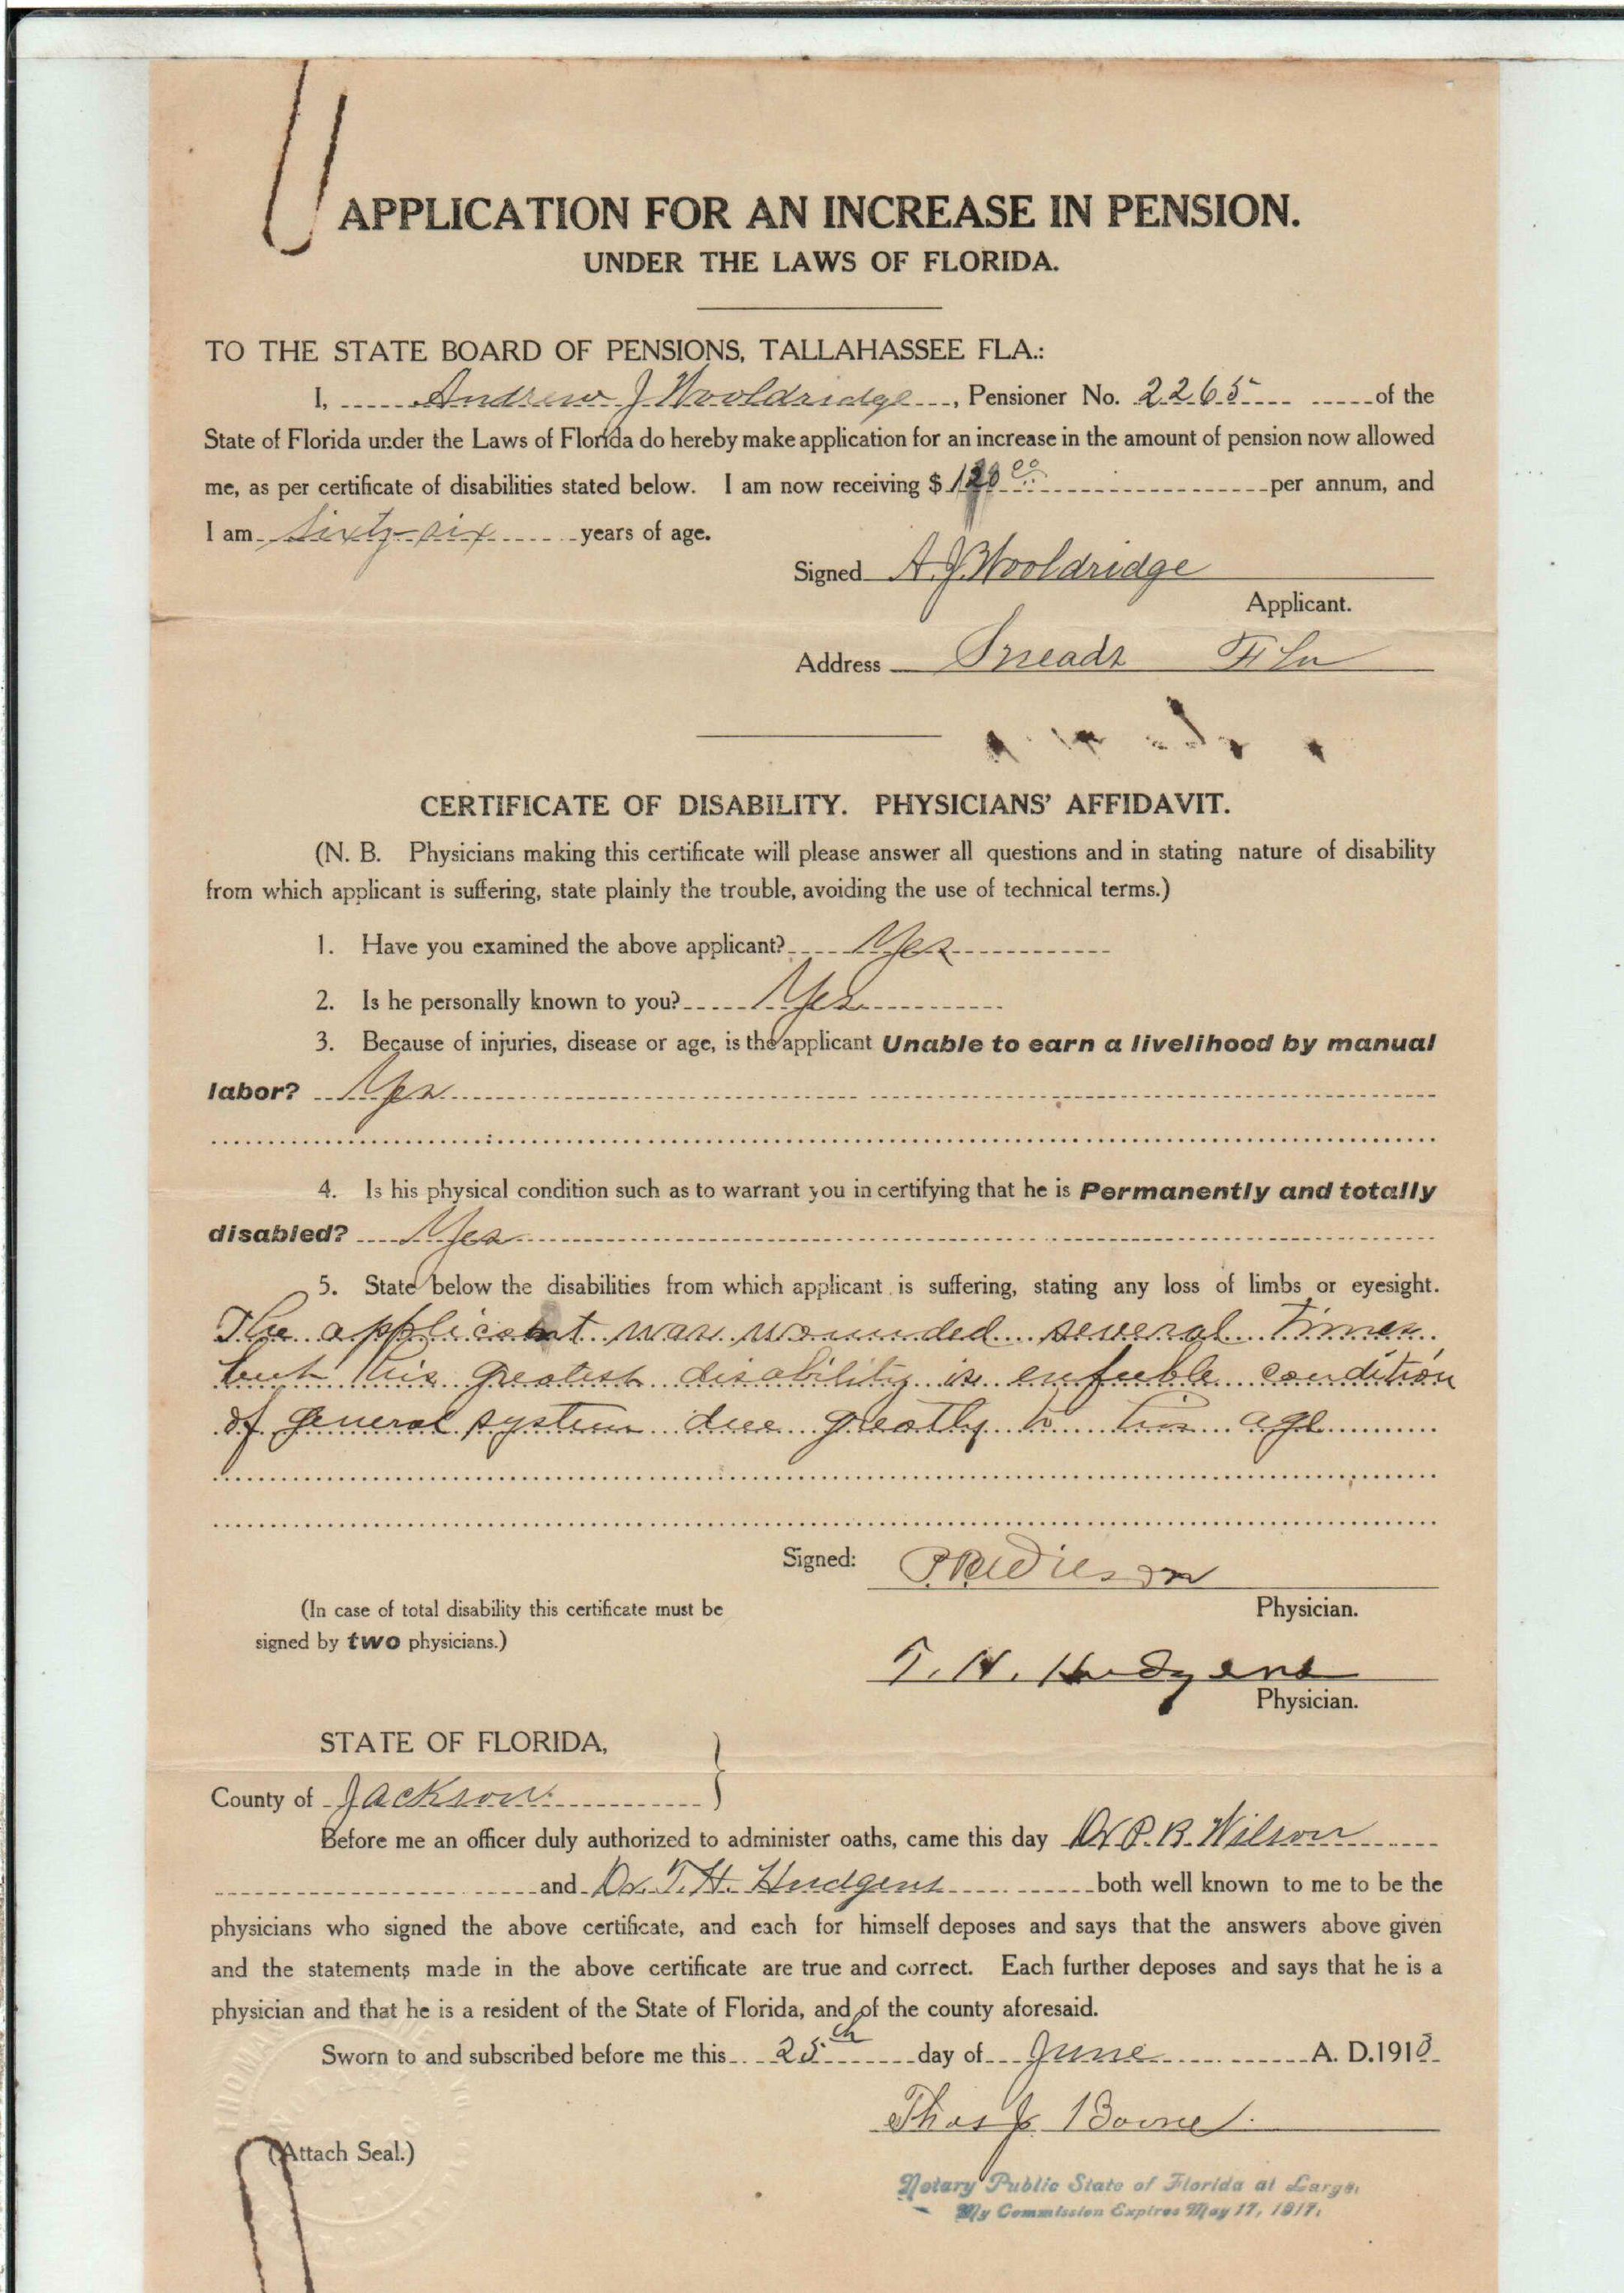 APPLICATION FOR AN INCREASE IN PENSION.
UNDER THE LAWS OF FLORIDA.
TO THE STATE BOARD OF PENSIONS, TALLAHASSEE FLA.:
I, Andrew J Wooldridge, Pensioner No. 2265 of the
State of Florida under the Laws of Florida do hereby make application for an increase in the amount of pension now allowed
me, as per certificate of disabilities stated below. I am now receiving $ 120 00 per annum, and
I am Sixty-six years of age.
Signed A. J. Wooldridge
Applicant.
Address Sneads Fla
CERTIFICATE OF DISABILITY. PHYSICIANS' AFFIDAVIT.
(N. B. Physicians making this certificate will please answer all questions and in stating nature of disability
from which applicant is suffering, state plainly the trouble, avoiding the use of technical terms.)
1. Have you examined the above applicant? Yes
2. Is he personally known to you? Yes
3. Because of injuries, disease or age, is the applicant Unable to earn a livelihood by manual
labor? Yes
4. Is his physical condition such as to warrant you in certifying that he is Permanently and totally
disabled? Yes
5. State below the disabilities from which applicant is suffering, stating any loss of limbs or eyesight.
The applicant was wounded several times
but his greatest disability is enfeeble condition
of general system due greatly to his age
Signed: P.R. Wilson
Physician.
(In case of total disability this certificate must be
signed by two physicians.)
T. H. Hudgens
Physician.
STATE OF FLORIDA,
County of Jackson
Before me an officer duly authorized to administer oaths, came this day Dr P. R. Wilson
and Dr. T. H. Hudgens both well known to me to be the
physicians who signed the above certificate, and each for himself deposes and says that the answers above given
and the statements made in the above certificate are true and correct. Each further deposes and says that he is a
physician and that he is a resident of the State of Florida, and of the county aforesaid.
Sworn to and subscribed before me this 25th day of June A. D. 1913
Thos J. Boone
(Attach Seal.)
Notary Public State of Florida at Large,
My Commission Expires May 17, 1917.